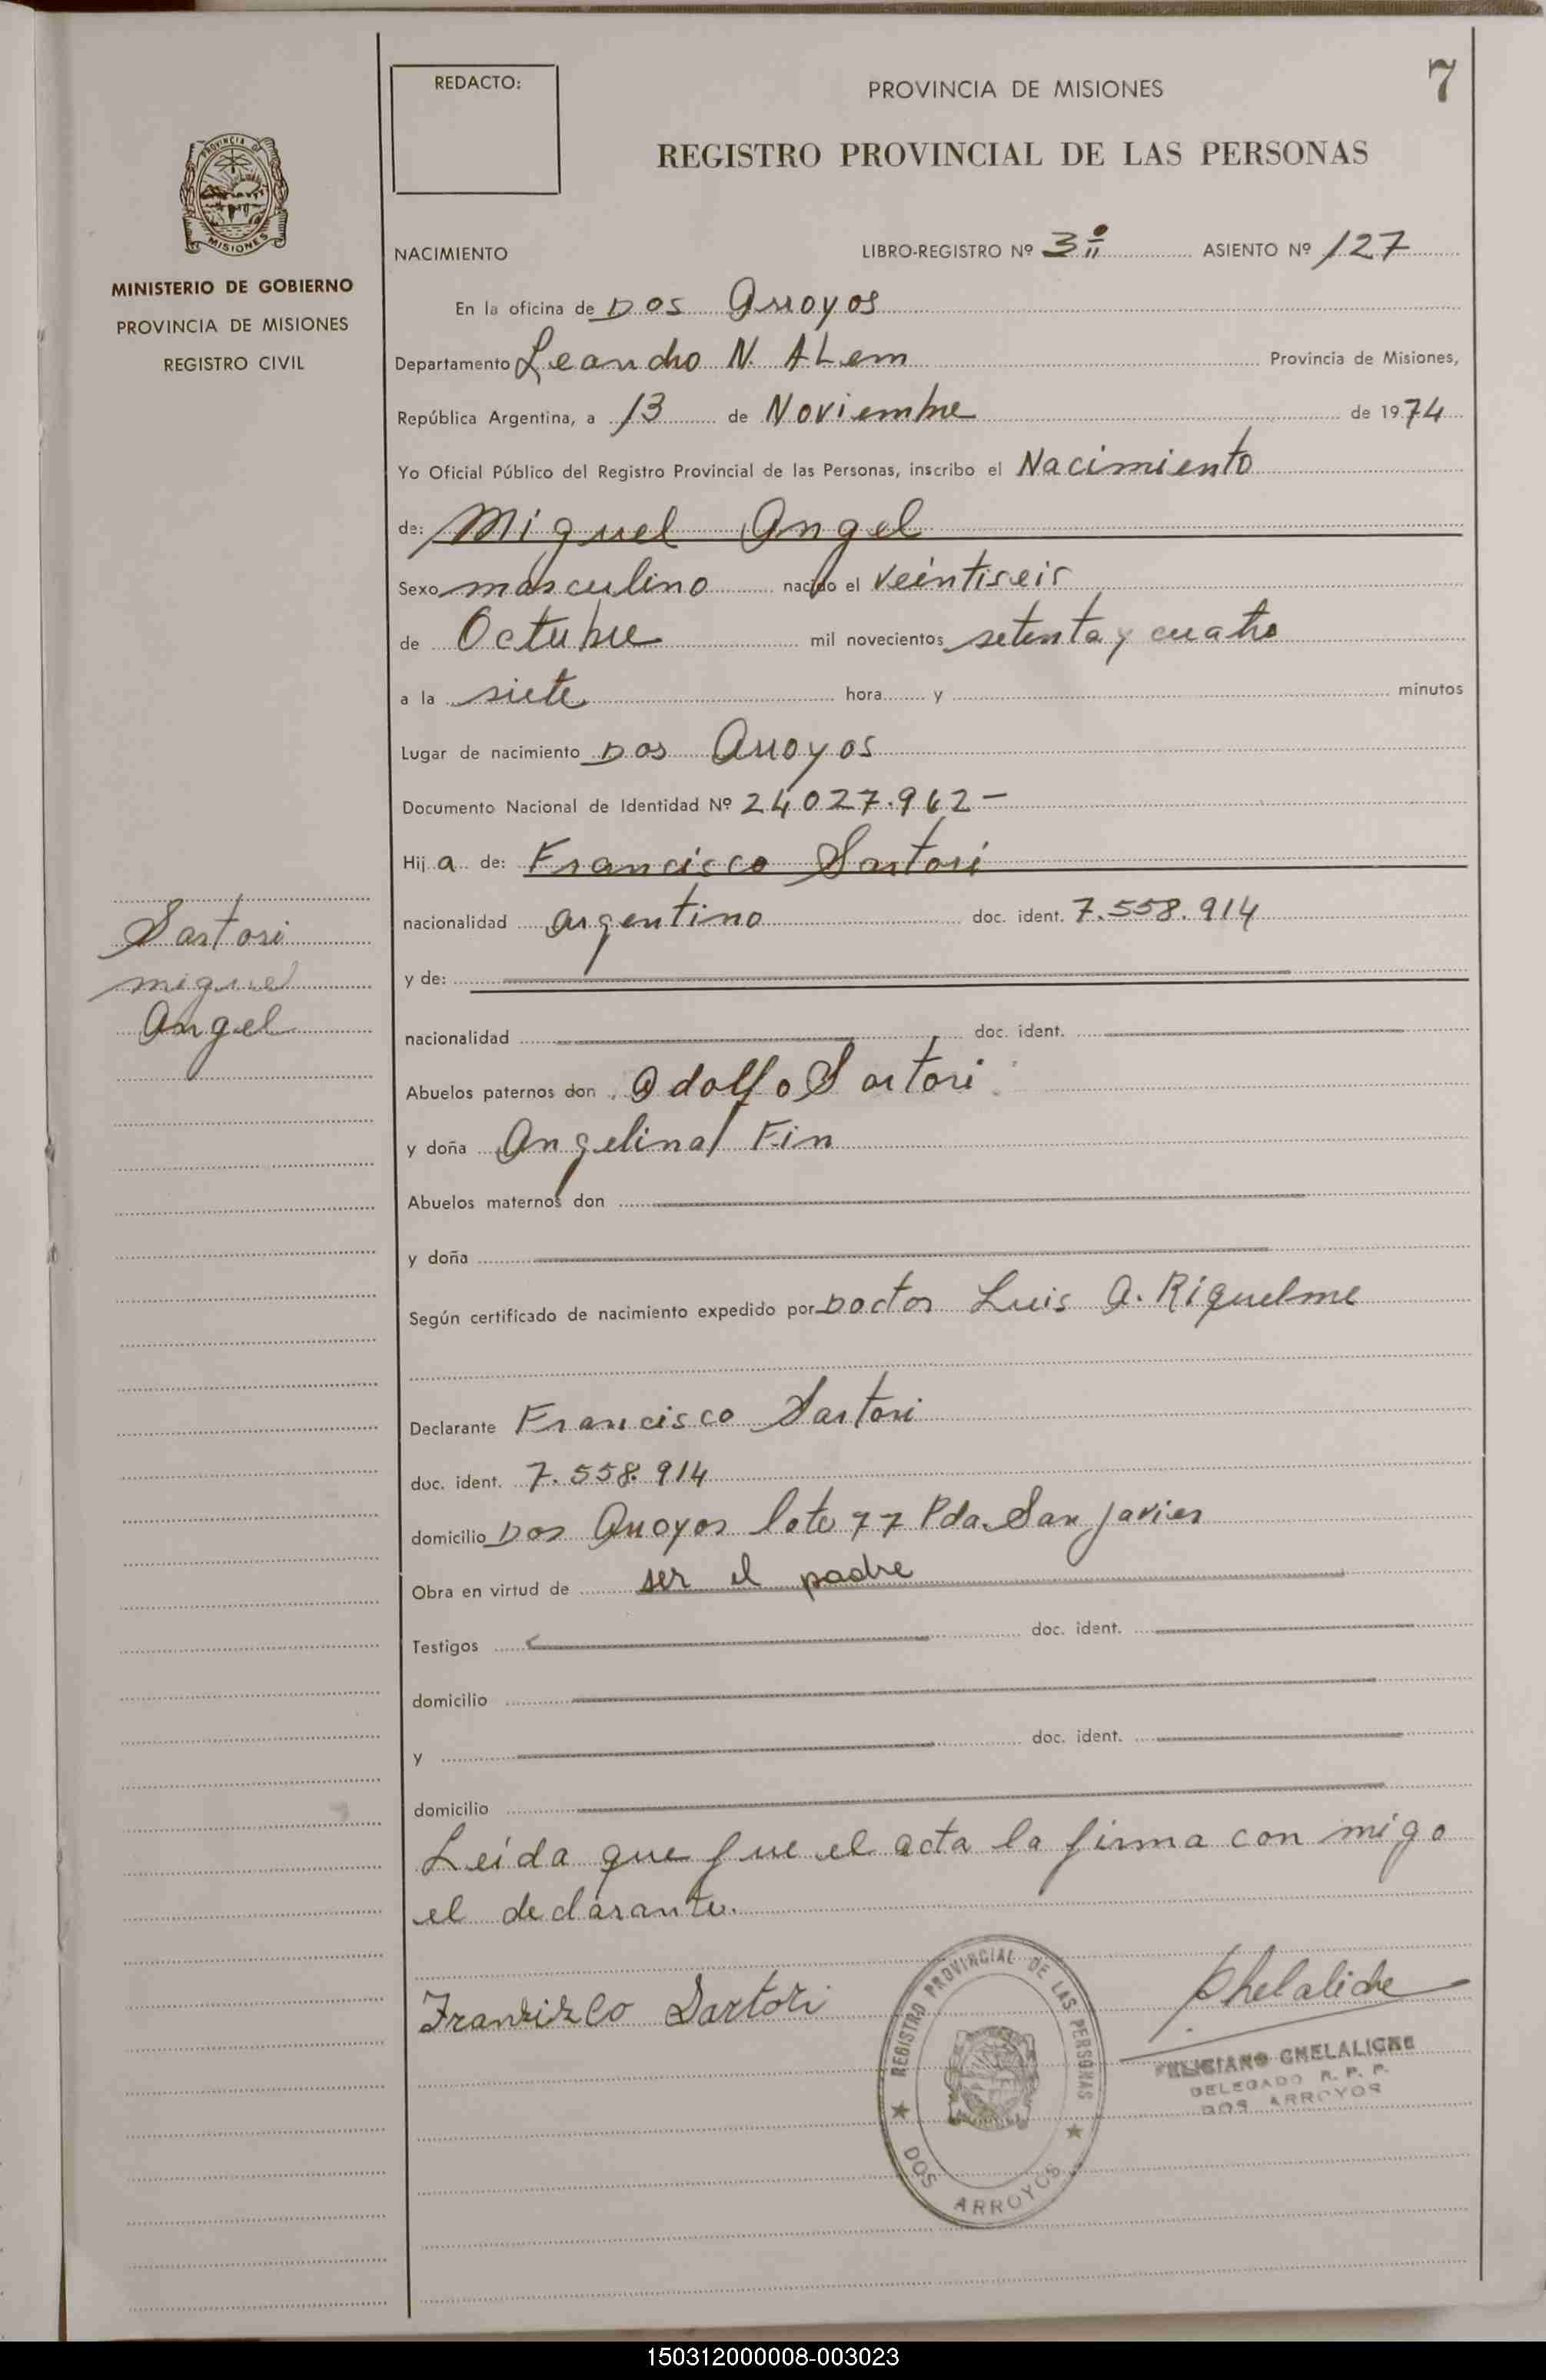 7
REDACTO:
PROVINCIA DE MISIONES
REGISTRO PROVINCIAL DE LAS PERSONAS
PROVINCIA DE
MISIONES
MINISTERIO DE GOBIERNO
PROVINCIA DE MISIONES
REGISTRO CIVIL
NACIMIENTO LIBRO-REGISTRO Nº 3º ASIENTO Nº 127
En la oficina de Dos Arroyos
Departamento Leandro N. ALem Provincia de Misiones,
República Argentina, a 13 de Noviembre de 1974
Yo Oficial Público del Registro Provincial de las Personas, inscribo el Nacimiento
de: Miguel Angel
Sexo masculino nacido el veintiseis
de Octubre mil novecientos setenta y cuatro
a la siete hora y minutos
Lugar de nacimiento Dos Arroyos
Documento Nacional de Identidad Nº 24.027.962-
Hij a de: Francisco Sartori
nacionalidad argentino doc. ident. 7.558.914
y de:
nacionalidad doc. ident.
Sartori
miguel
Angel
Abuelos paternos don Adolfo Sartori
y doña Angelina Fin
Abuelos maternos don
y doña
Según certificado de nacimiento expedido por Doctor Luis A. Riquelme
Declarante Francisco Sartori
doc. ident. 7.558.914
domicilio Dos Arroyos lote 77 Pda. San Javier
Obra en virtud de ser el padre
Testigos doc. ident.
domicilio
y doc. ident.
domicilio
Leída que fue el acta la firma con migo
el declarante.
Franzizco Sartori
Chelaliche
REGISTRO PROVINCIAL DE LAS PERSONAS
DOS ARROYOS
FELICIANO CHELALICHE
DELEGADO R. P. P.
DOS ARROYOS
150312000008-003023